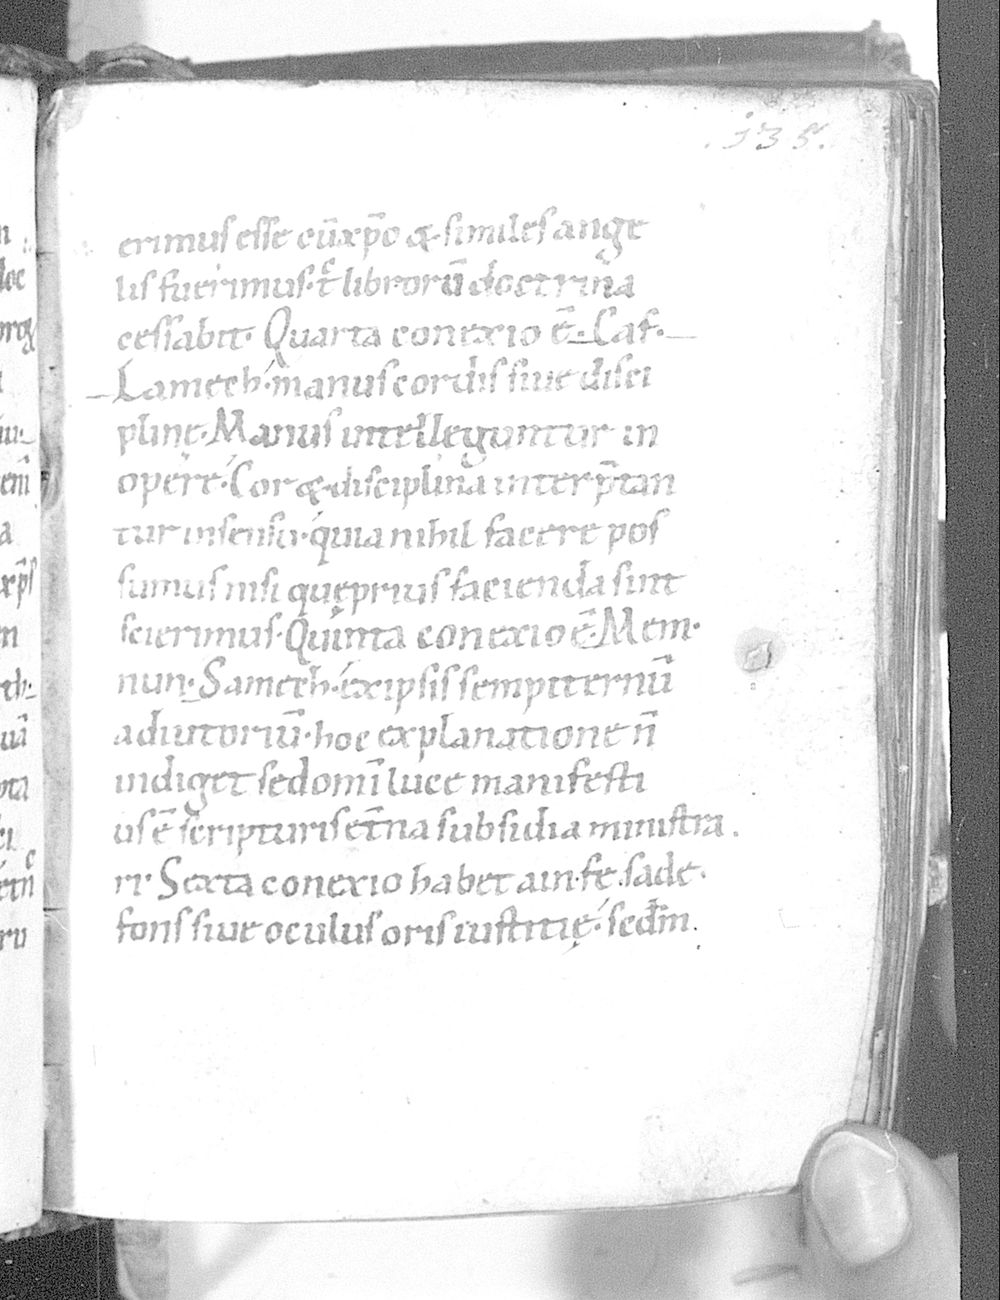 .135.
erimus esse cū xp̄o & similes ange
lis fuerimus· t̄c librorū doctrina
cessabit· Quarta conexio ē· Caf·
Lamech· manus cordis siue disci
plinę· Manus intelleguntur in
opere· Cor & disciplina interp̄tan
tur in sensu· quia nihil facere pos
sumus nisi quę prius facienda sint
scierimus· Quinta conexio ē· Mem·
nun· Samech· ex ipsis sempiternū
adiutoriū· hoc explanatione n̄
indiget sed omī luce manifesti
us ē scripturis et̄na subsidia ministra
ri· Sexta conexio habet ain· fe· sade·
fons siue oculus oris iustitię· sed m̄